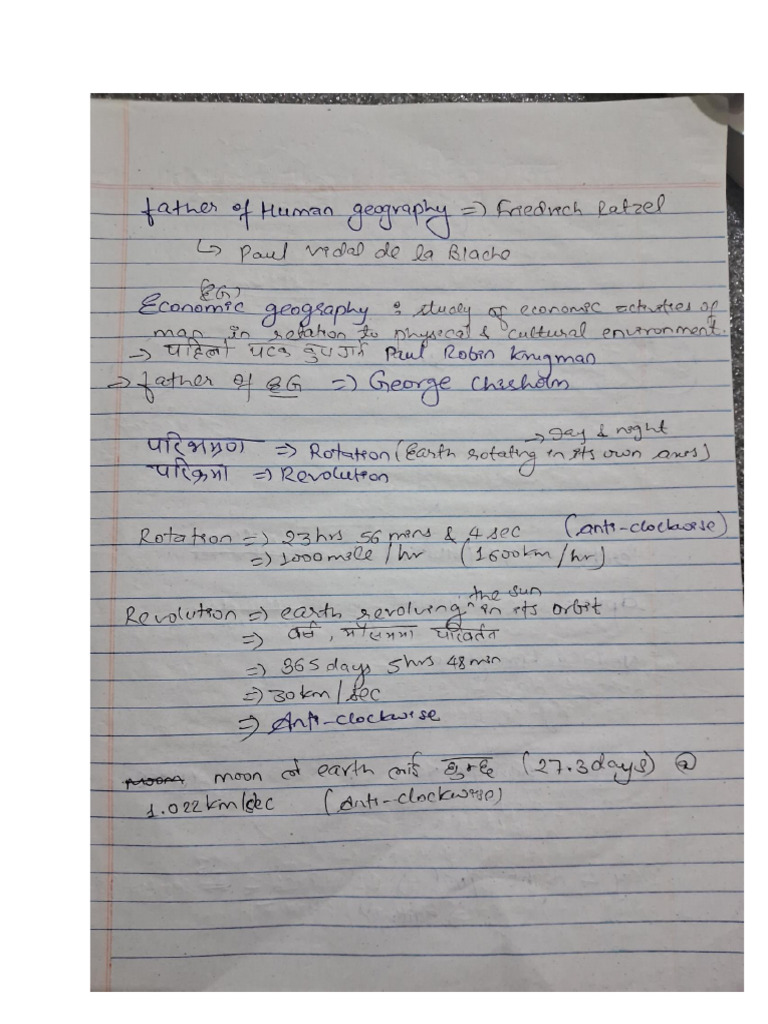 father of Human geography => Friedrich Ratzel
↳ Paul Vidal de la Blache
(EG)
Economic geography : study of economic activities of
man in relation to physical & cultural environment.
-> पहिलो पटक Paul Robin Krugman
-> father of EG => George Chisholm
-> Day & night
परिभ्रमण => Rotation (Earth rotating in its own axes)
परिक्रमा => Revolution
Rotation => 23hrs 56 mins & 4 sec (anti-clockwise)
=> 1000mile/hr (1600km/hr)
the sun
Revolution => earth revolving ^ in its orbit
=> वर्ष, मौसममा परिवर्तन
=> 365 days 5hrs 48 min
=> 30 km/sec
=> Anti-clockwise
moon ले earth लाई घुम्छ (27.3days) @
1.022 km/sec (Anti-clockwise)